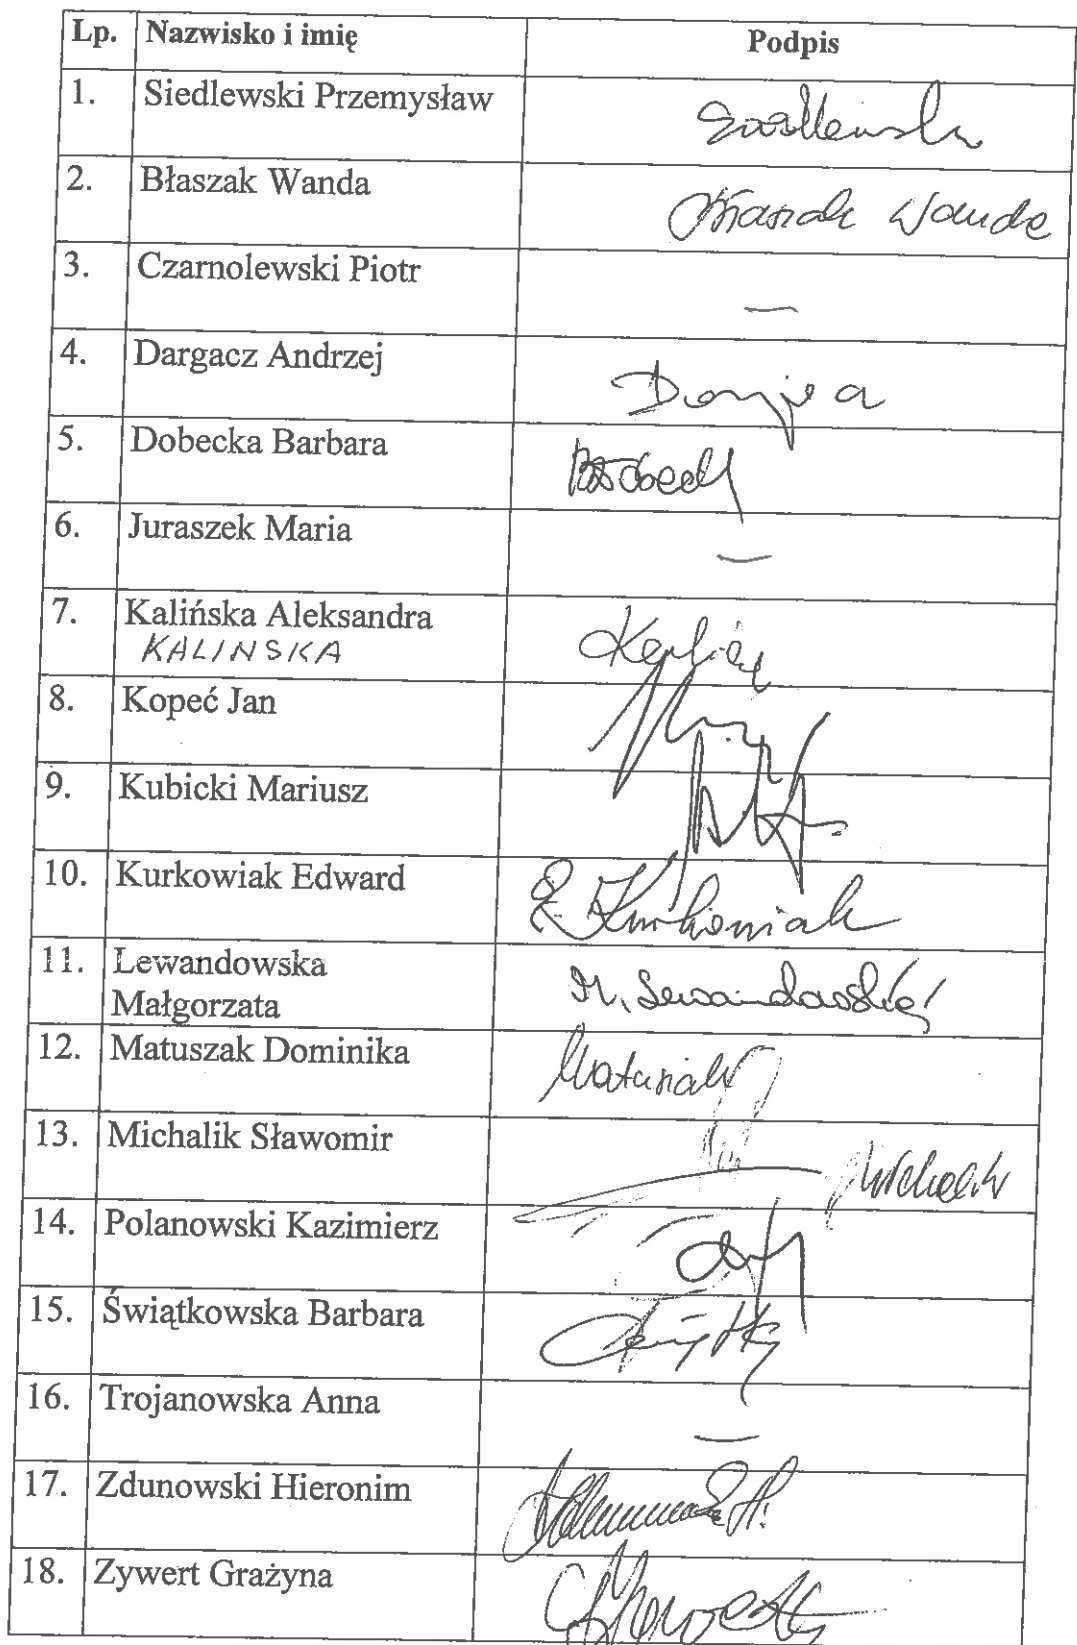 Lp. Nazwisko i imię Podpis
1. Siedlewski Przemysław
2. Błaszak Wanda Błaszak Wanda
3. Czarnolewski Piotr —
4. Dargacz Andrzej
5. Dobecka Barbara
6. Juraszek Maria —
7. Kalińska Aleksandra
KALINSKA
8. Kopeć Jan
9. Kubicki Mariusz
10. Kurkowiak Edward E. Kurkowiak
11. Lewandowska M. Lewandowska
Małgorzata
12. Matuszak Dominika Matuszak
13. Michalik Sławomir Michalik
14. Polanowski Kazimierz
15. Świątkowska Barbara
16. Trojanowska Anna —
17. Zdunowski Hieronim
18. Zywert Grażyna